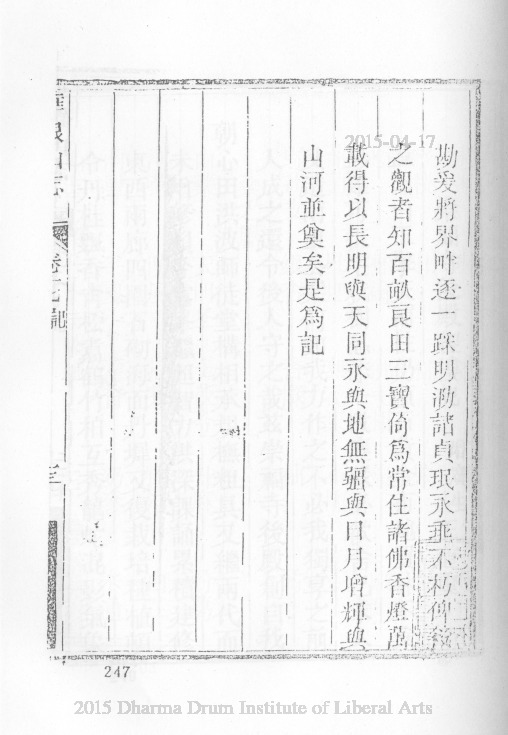 勘爰將界畔逐一踩明泐諸貞珉永垂不朽俾
之觀者知百畝良田三寶倚爲常住諸佛香燈萬
載得以長明與天同永與地無疆與日月增輝與
山河並奠矣是爲記
銀山志
卷七記
247
2015-04-17
2015 Dharma Drum Institute of Liberal Arts